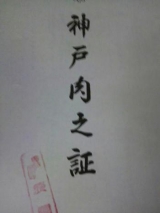 神戸肉之証